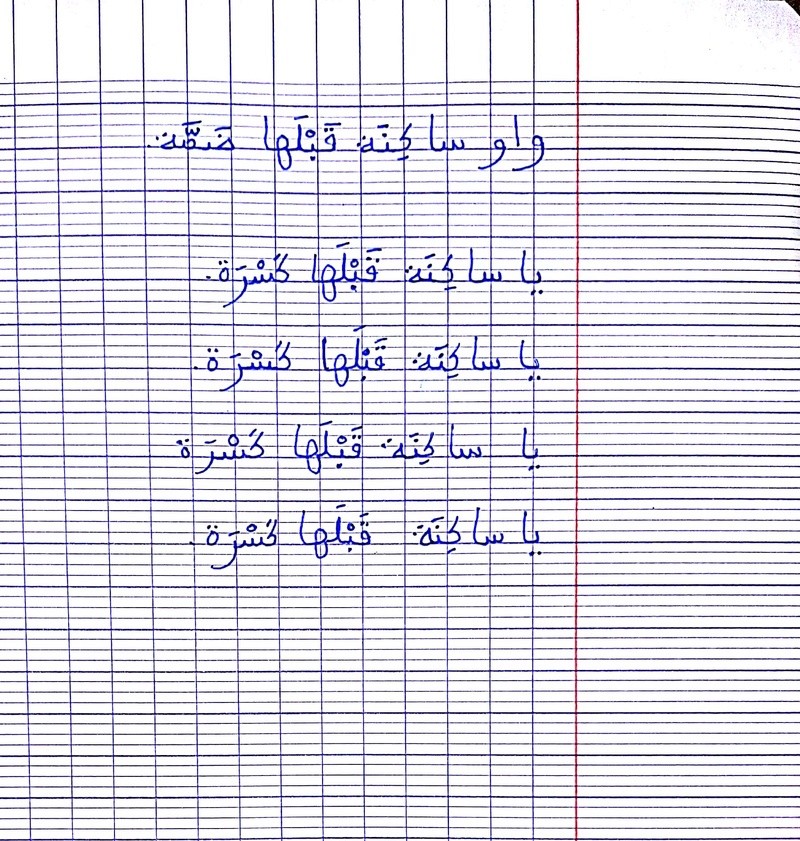 واو ساكِنَة قَبْلَها ضَمَّة.
يا ساكِنَة قَبْلَها كَسْرَة.
يا ساكِنَة قَبْلَها كَسْرَة.
يا ساكِنَة قَبْلَها كَسْرَة
يا ساكِنَة قَبْلَها كَسْرَة.